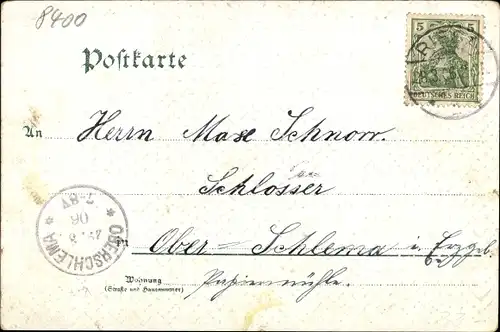 8400
Postkarte
5 5
DEUTSCHES REICH
An Herrn Max Schnorr.
Schlosser
in Ober=Schlema i. Erzgeb.
Wohnung
(Straße und Hausnummer)
Papiermühle.
* OBERSCHLEMA *
7-8V
06